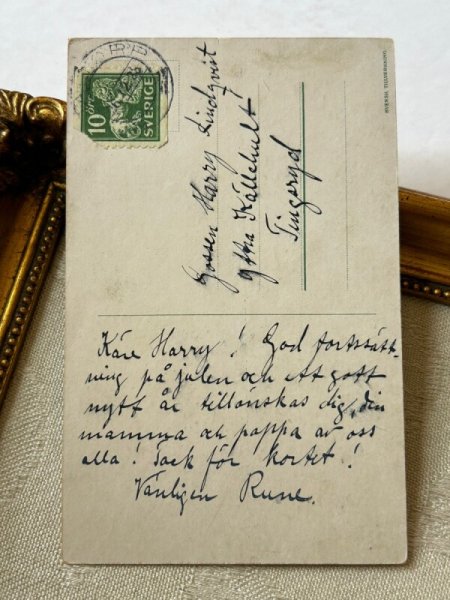 10 ÖRE
SVERIGE
SVENSK TILLVERKNING
Gossen Harry Lindqvist
Yttra Källehult
Tingsryd
Käre Harry! God fortsätt-
ning på julen och ett gott
nytt år tillönskas dig, din
mamma och pappa av oss
alla! Tack för kortet!
Vänligen Rune.